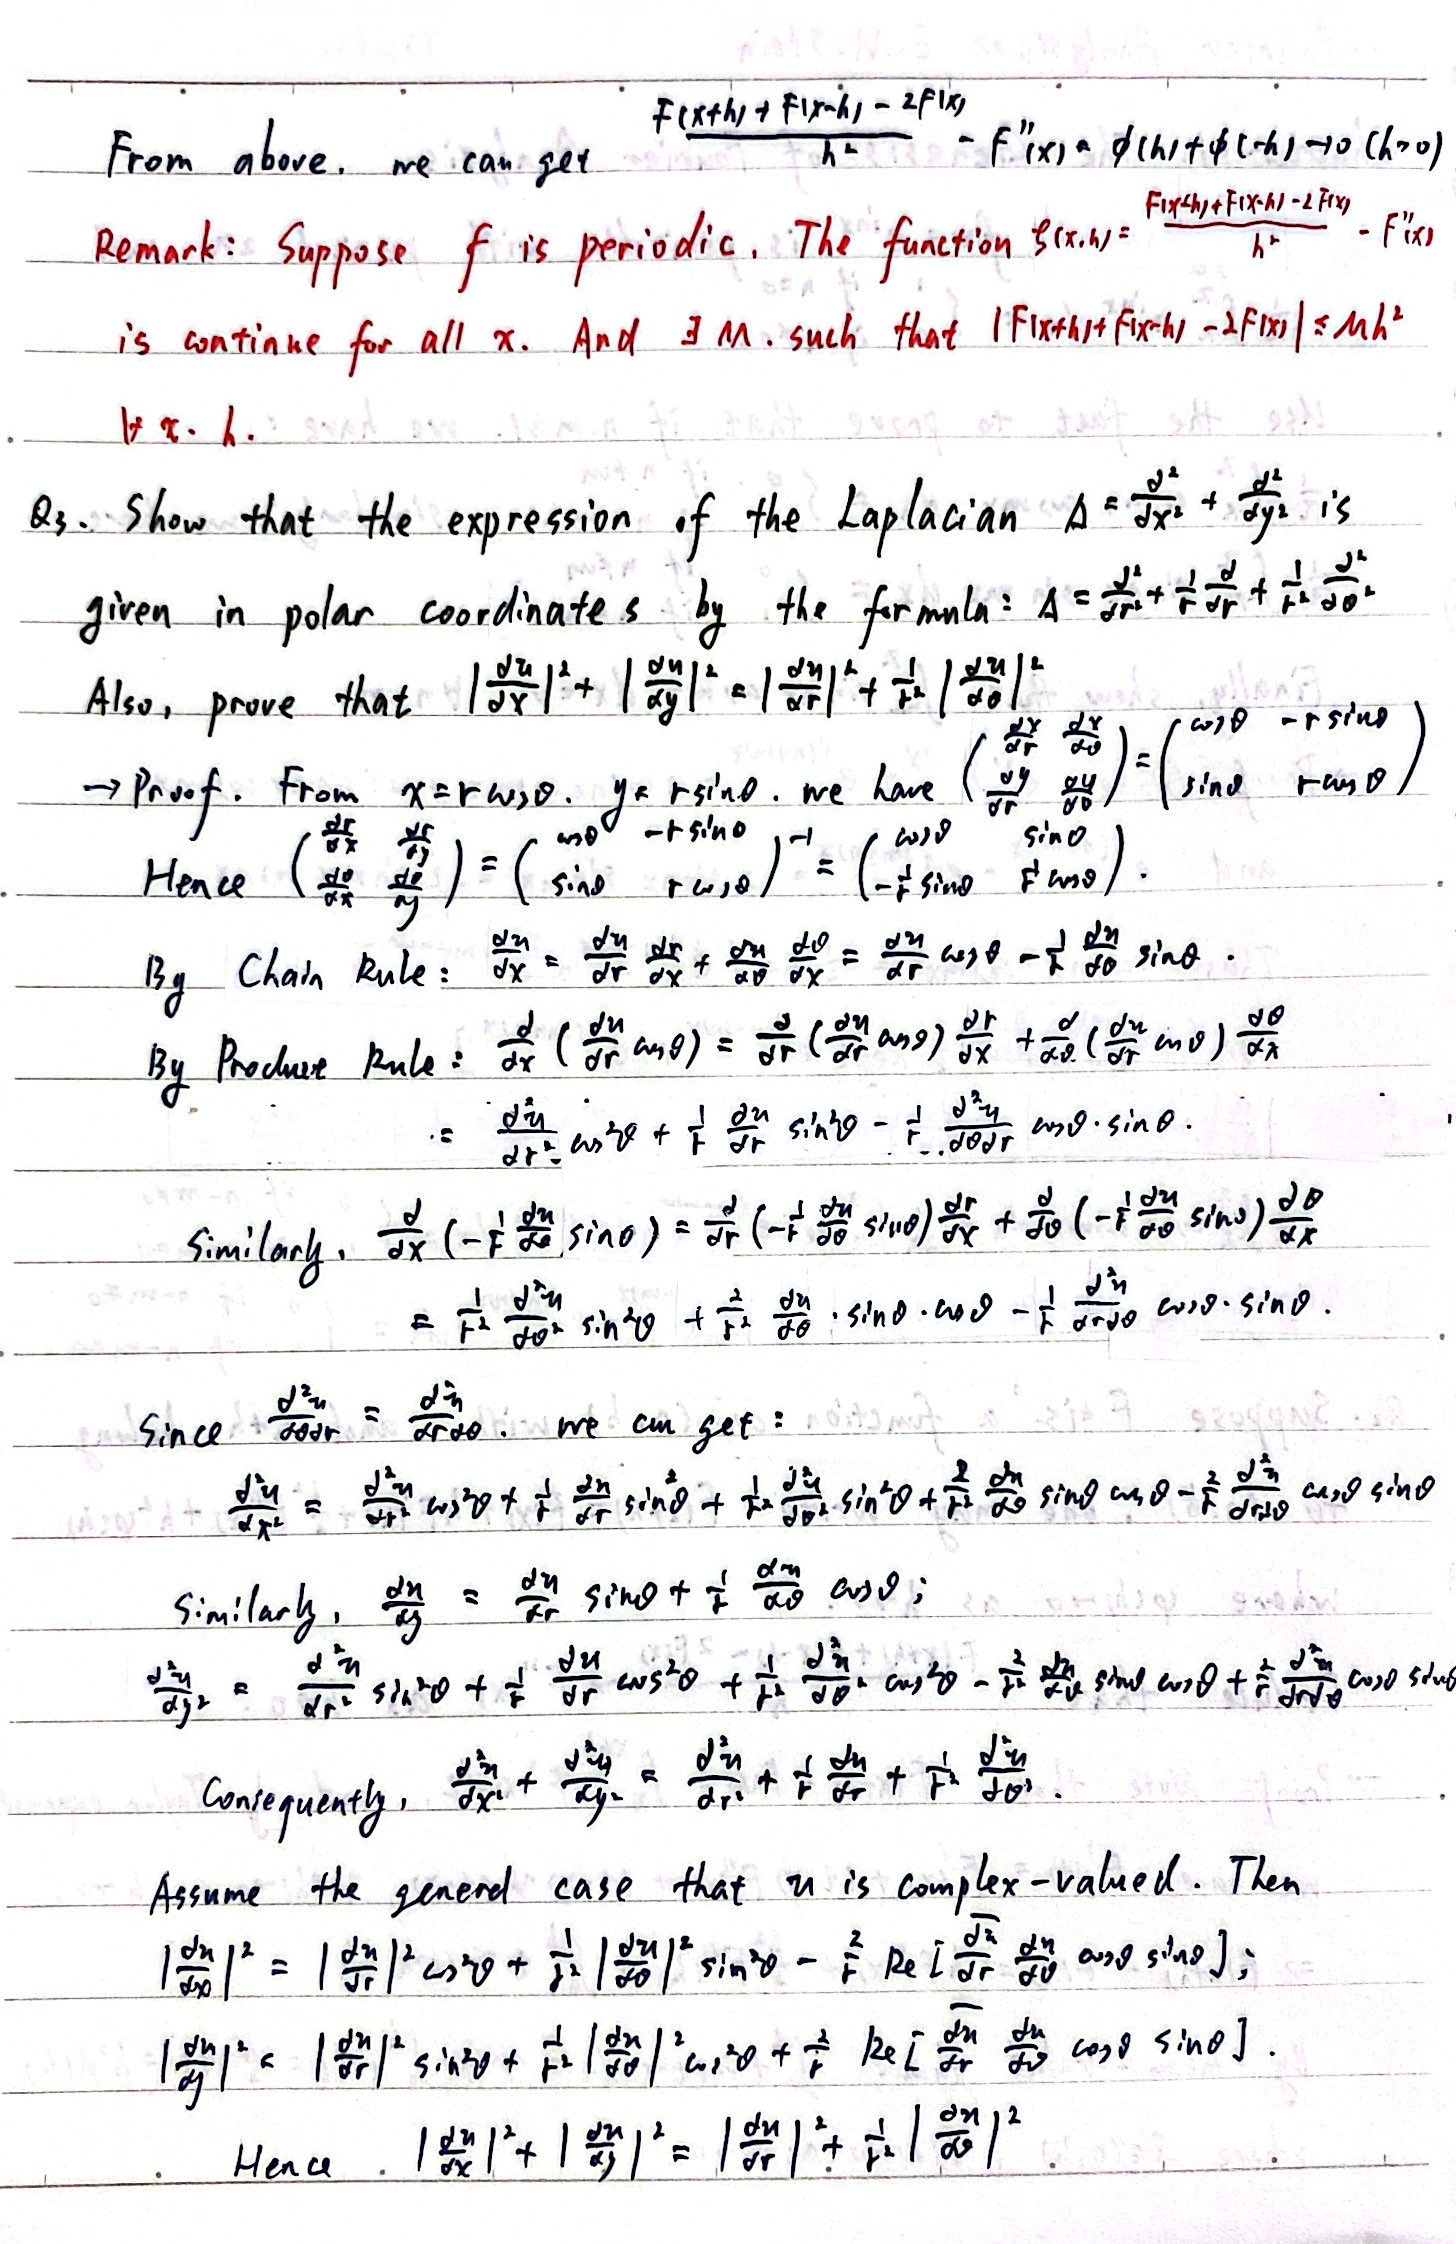 From above, we can get (F(x+h)+F(x-h)-2F(x))/h² - F''(x) = φ(h)+φ(-h)→0 (h→0)
Remark: Suppose f is periodic. The function ξ(x,h) = (F(x+h)+F(x-h)-2F(x))/h² - F''(x)
is continue for all x. And ∃ M. such that |F(x+h)+F(x-h)-2F(x)| ≤ Mh²
∀ x. h.
Q3. Show that the expression of the Laplacian Δ = ∂²/∂x² + ∂²/∂y² is
given in polar coordinates by the formula: Δ = ∂²/∂r² + 1/r ∂/∂r + 1/r² ∂²/∂θ²
Also, prove that |∂u/∂x|² + |∂u/∂y|² = |∂u/∂r|² + 1/r² |∂u/∂θ|²
→ Proof. From x = r cosθ. y = r sinθ. we have (∂x/∂r ∂x/∂θ; ∂y/∂r ∂y/∂θ) = (cosθ -r sinθ; sinθ r cosθ)
Hence (∂r/∂x ∂r/∂y; ∂θ/∂x ∂θ/∂y) = (cosθ -r sinθ; sinθ r cosθ)⁻¹ = (cosθ sinθ; -1/r sinθ 1/r cosθ).
By Chain Rule: ∂u/∂x = ∂u/∂r ∂r/∂x + ∂u/∂θ ∂θ/∂x = ∂u/∂r cosθ - 1/r ∂u/∂θ sinθ.
By Product Rule: ∂/∂x (∂u/∂r cosθ) = ∂/∂r (∂u/∂r cosθ) ∂r/∂x + ∂/∂θ (∂u/∂r cosθ) ∂θ/∂x
= ∂²u/∂r² cos²θ + 1/r ∂u/∂r sin²θ - 1/r ∂²u/∂θ∂r cosθ·sinθ.
Similarly, ∂/∂x (-1/r ∂u/∂θ sinθ) = ∂/∂r (-1/r ∂u/∂θ sinθ) ∂r/∂x + ∂/∂θ (-1/r ∂u/∂θ sinθ) ∂θ/∂x
= 1/r² ∂²u/∂θ² sin²θ + 2/r² ∂u/∂θ · sinθ · cosθ - 1/r ∂²u/∂r∂θ cosθ·sinθ.
Since ∂²u/∂θ∂r = ∂²u/∂r∂θ. we can get:
∂²u/∂x² = ∂²u/∂r² cos²θ + 1/r ∂u/∂r sin²θ + 1/r² ∂²u/∂θ² sin²θ + 2/r² ∂u/∂θ sinθ cosθ - 2/r ∂²u/∂r∂θ cosθ sinθ
Similarly, ∂u/∂y = ∂u/∂r sinθ + 1/r ∂u/∂θ cosθ;
∂²u/∂y² = ∂²u/∂r² sin²θ + 1/r ∂u/∂r cos²θ + 1/r² ∂²u/∂θ² cos²θ - 2/r² ∂u/∂θ sinθ cosθ + 2/r ∂²u/∂r∂θ cosθ sinθ
Consequently, ∂²u/∂x² + ∂²u/∂y² = ∂²u/∂r² + 1/r ∂u/∂r + 1/r² ∂²u/∂θ².
Assume the general case that u is complex-valued. Then
|∂u/∂x|² = |∂u/∂r|² cos²θ + 1/r² |∂u/∂θ|² sin²θ - 2/r Re[\overline{∂u/∂r} ∂u/∂θ cosθ sinθ];
|∂u/∂y|² = |∂u/∂r|² sin²θ + 1/r² |∂u/∂θ|² cos²θ + 2/r Re[\overline{∂u/∂r} ∂u/∂θ cosθ sinθ].
Hence |∂u/∂x|² + |∂u/∂y|² = |∂u/∂r|² + 1/r² |∂u/∂θ|²